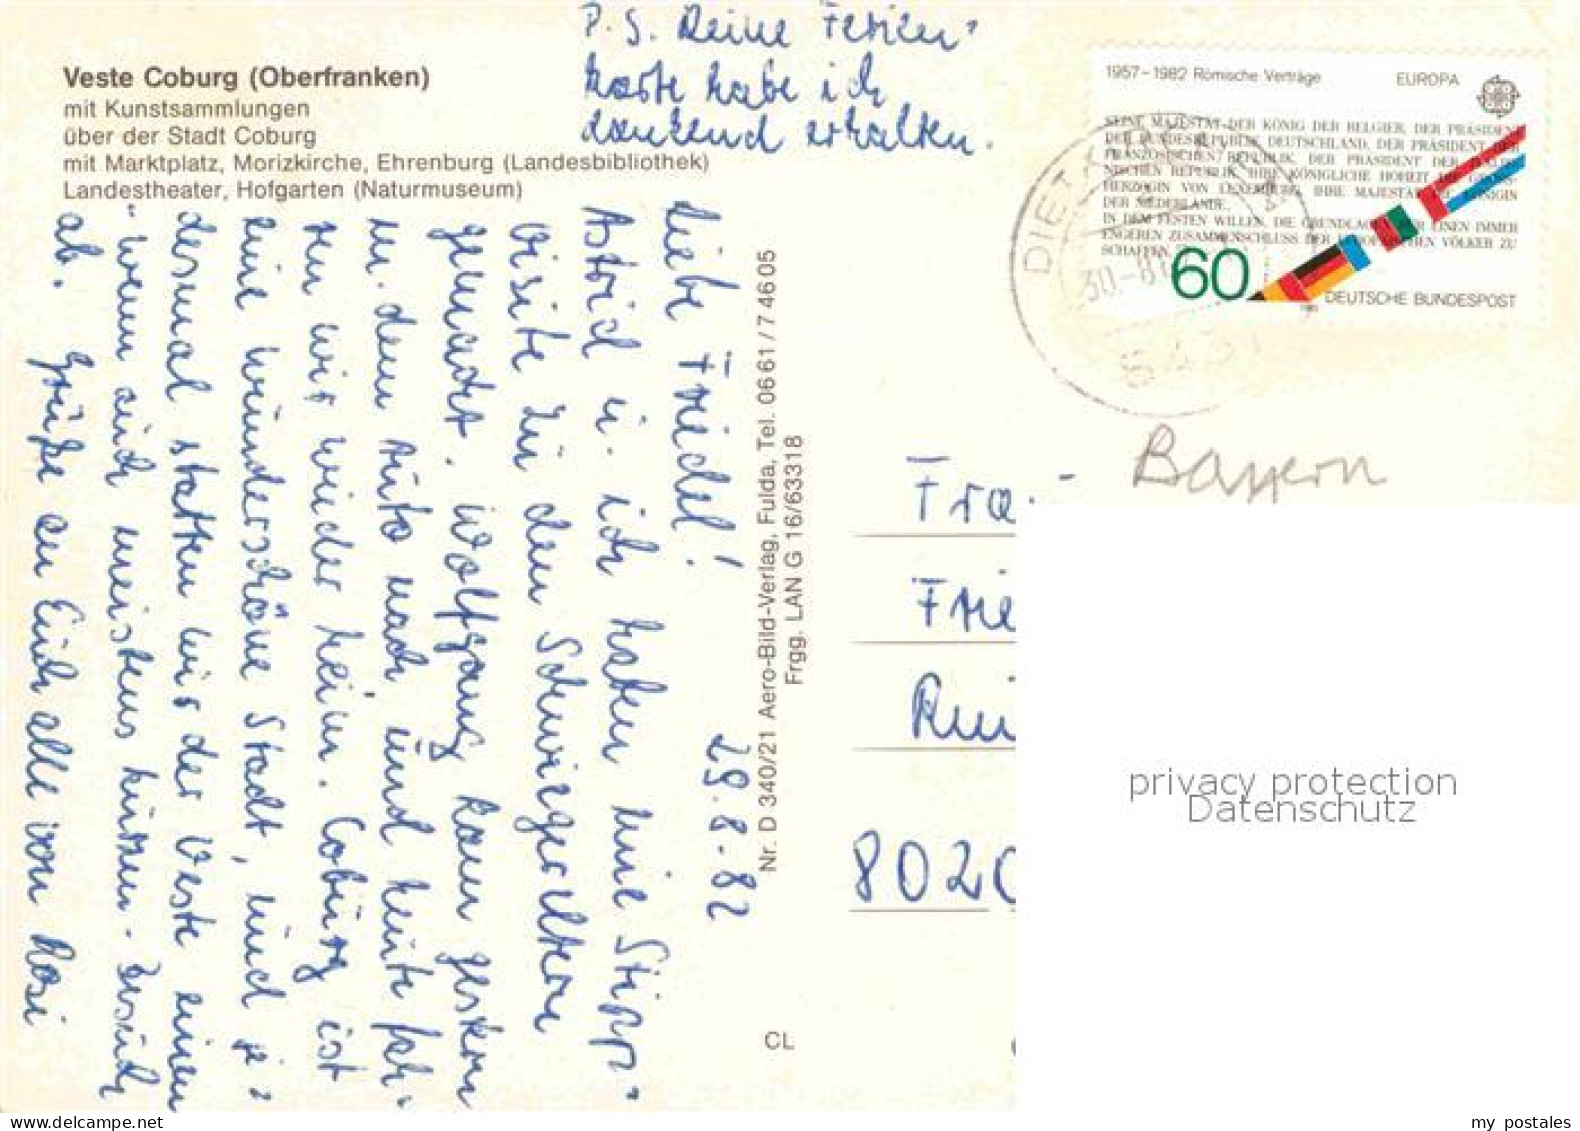 P.S. Deine Ferien-
karte habe ich
dankend erhalten.
Veste Coburg (Oberfranken)
mit Kunstsammlungen
über der Stadt Coburg
mit Marktplatz, Morizkirche, Ehrenburg (Landesbibliothek)
Landestheater, Hofgarten (Naturmuseum)
29.8.82
Liebe Friedel!
Astrid u. ich haben eine Stipp-
Visite zu den Schwiegereltern
gemacht. Wolfgang kam gestern
m. dem Auto nach und heute fah-
ren wir wieder heim. Coburg ist
eine wunderschöne Stadt, und je-
desmal statten wir der Veste einen
wenn auch meistens kurzen - Besuch
ab. Grüße an Euch alle von Rosi
Nr. D 340/21 Aero-Bild-Verlag, Fulda, Tel. 0661/7 46 05
Frgg. LAN G 16/63318
CL
1957-1982 Römische Verträge EUROPA
SEINE MAJESTÄT DER KÖNIG DER BELGIER, DER PRÄSIDENT
DER BUNDESREPUBLIK DEUTSCHLAND, DER PRÄSIDENT DER
FRANZÖSISCHEN REPUBLIK, DER PRÄSIDENT DER ITALIE-
NISCHEN REPUBLIK, IHRE KÖNIGLICHE HOHEIT DIE GROSS-
HERZOGIN VON LUXEMBURG, IHRE MAJESTÄT DIE KÖNIGIN
DER NIEDERLANDE,
IN DEM FESTEN WILLEN, DIE GRUNDLAGEN FÜR EINEN IMMER
ENGEREN ZUSAMMENSCHLUSS DER EUROPÄISCHEN VÖLKER ZU
SCHAFFEN
60
DEUTSCHE BUNDESPOST
Bayern
Fra
Frie
8020
privacy protection
Datenschutz
my postales